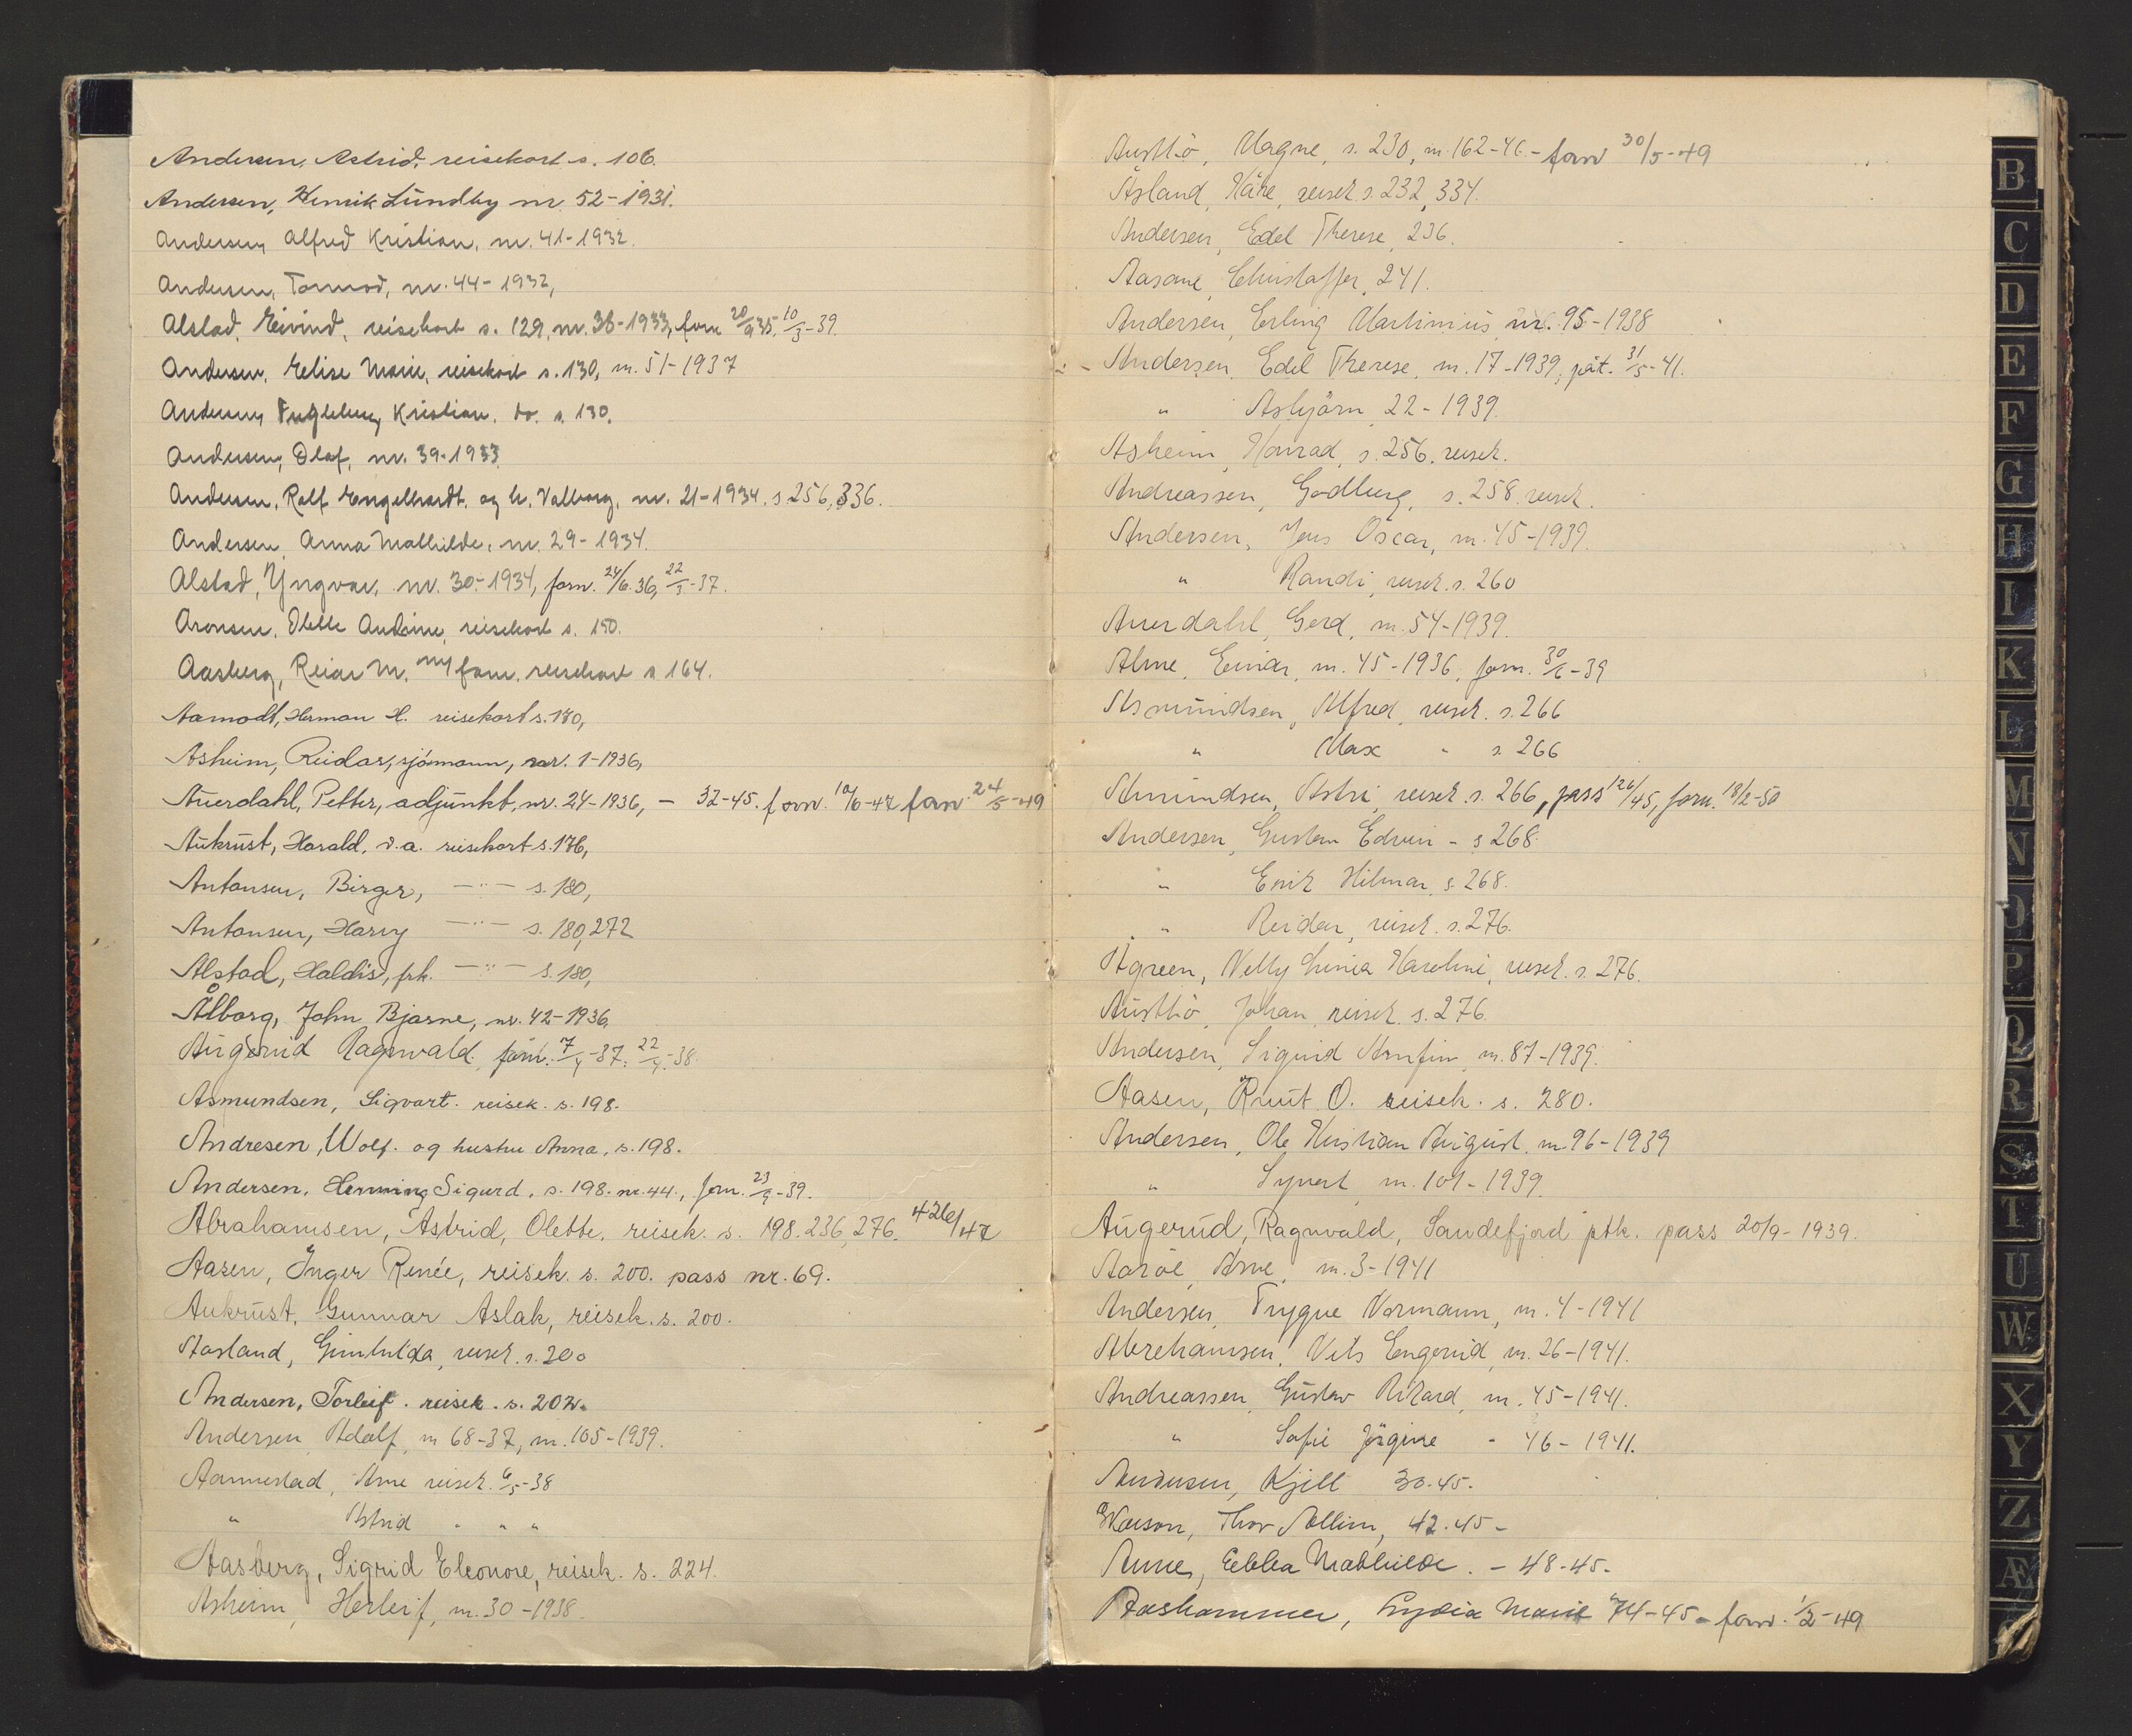 Andersen, Astrid, reisekort s. 106.
Andersen, Henrik Lundby nr. 52-1931.
Andersen, Alfred Kristian, nr. 41-1932.
Andersen, Tormod, nr. 44-1932,
Alstad, Eivind, reisekort s. 129, nr. 36-1933, forn 20/9 35, 10/3-39.
Andersen, Elise Marie, reisekort s. 130, nr. 51-1937
Andersen, Kristian, do. s. 130.
Andersen, Olaf, nr. 39-1933
Andersen, Rolf Engelhardt, og h. Valborg, nr. 21-1934. s 256, 336.
Andersen, Anna Mathilde, nr. 29-1934.
Alstad, Yngvar, nr. 30-1934, forn. 24/6.36, 22/3-37.
Aronsen, Andrine, reisekort s. 150.
Aasberg, Reiar M. ny forn. reisekort s 164.
Aamodt, Herman H. reisekort s. 170,
Asheim, Reidar, sjömann, nr. 1-1936,
Auerdahl, Petter, adjunkt, nr. 24-1936, - 32-45. forn. 10/6-47 forn. 24/5-49
Aukrust, Harald, v.a. reisekort s. 176,
Antonsen, Birger, —"— s. 180,
Antonsen, Harry —"— s. 180, 272
Alstad, Haldis, frk. —"— s. 180,
Ålborg, John Bjarne, nr. 42-1936.
Augerud Ragnvald, forn. 7/4-37: 22/4-38.
Asmundsen, Sigvart. reisek. s. 198.
Andresen, Wolf. og hustru Anna, s. 198.
Andersen, Henning Sigurd, s. 198. nr. 44., forn. 23/9-39.
Abrahamsen, Astrid, Olette, reisek. s. 198. 236, 276. 426/47
Aasen, Inger Renée, reisek. s. 200. pass nr. 69.
Aukrust, Gunnar Aslak, reisek. s. 200.
Aasland, reisek. s. 200
Andersen, Torleif. reisek. s. 202.
Andersen Adolf, nr 68-37, nr. 105-1939.
Aannestad, Arne reisek. 6/5-38
" Astrid " " "
Aasberg, Sigrid Eleonore, reisek. s. 224.
Asheim, Herleif, nr. 30-1938.
Austliö, Magne, s. 230, nr 162-46.- forn 30/5-49
Åsland, Kåre, reisek. s. 232, 334.
Andersen, Edel Therese, 236.
Aasane, Christoffer, 241.
Andersen, Erling Martinius, nr. 95-1938
Andersen, Edel Therese, nr. 17-1939, påt. 31/5-41.
" Asbjörn 22-1939.
Asheim, Konrad, s. 256, reisek.
Andreassen, Godburg, s. 258. reisek.
Andersen, Jens Oscar, nr. 45-1939.
" Randi, reisek. s. 260
Auerdahl, Gerd, nr. 54-1939.
Alme, Einar, nr. 45-1936, forn. 30/6-39
Asmundsen, Alfred, reisek. s. 266
" Max " s. 266
Amundsen, Astri, reisek. s. 266, pass 126/45, forn. 18/2-50
Andersen, Gustav Edvin - s 268.
" Erik Hilmar, s. 268.
" Reidar, reisek. s. 276.
Ågreen, Nelly Karoline, reisek. s. 276.
Austliö, Johan, reisek. s. 276.
Andersen, Sigurd Arnfinn, nr. 87-1939.
Aasen, Knut O. reisek. s. 280.
Andersen, Ole Kristian August, nr 96-1939
" Syvert, nr. 101-1939.
Augerud, Ragnvald, Sandefjord ptk. pass 20/9-1939.
Aaröe, Arne, nr. 3-1941
Andersen, Trygve Normann, nr. 4-1941
Abrehamsen, Nils Engerud, nr. 26-1941.
Andreassen, Gustav Rikard, nr. 45-1941.
" Sofie Jörgine " 46-1941.
Andersen, Kjell 30-45.
Thor 42-45-
Anne, Ebba Mathilde. - 48-45-
Aashammer, Lydia Marie 74-45- forn. 1/2-49
B
C
D
E
F
G
H
I
K
L
M
N
O
P
Q
R
S
T
U
W
X
Y
Z
Æ